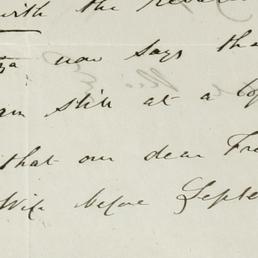 with the
now says tha
am still at a lo
that our dear Fre
Wife before Septe